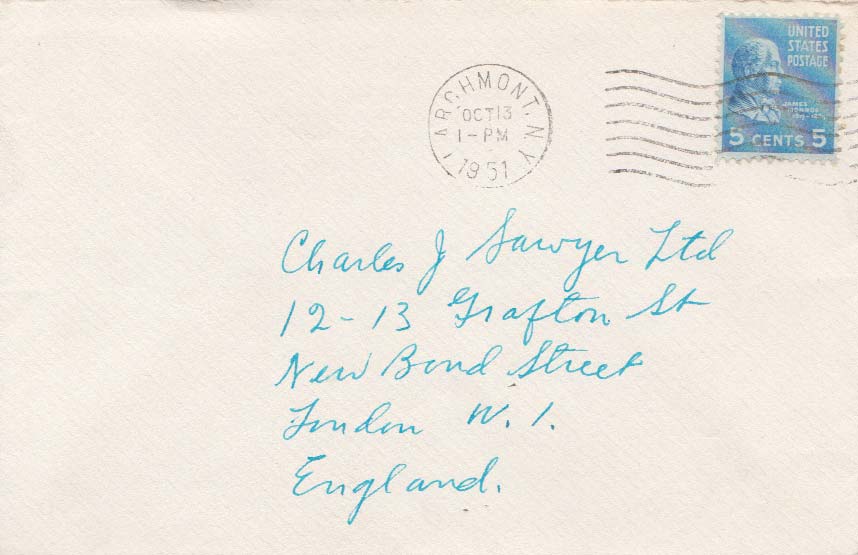 UNITED
STATES
POSTAGE
JAMES
MONROE
5 CENTS 5
LARCHMONT, N.Y.
OCT 13
1-PM
1951
Charles J Sawyer Ltd
12-13 Grafton St
New Bond Street
London W. 1.
England.